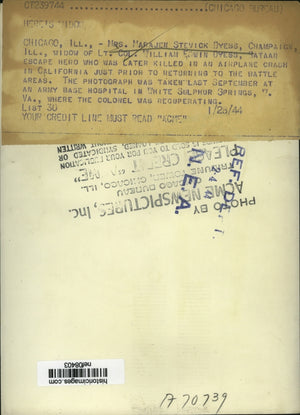 CT239744 (CHICAGO BUREAU)
HERO'S WIDOW
CHICAGO, ILL., - MRS. MARAJEN STEVICK DYESS, CHAMPAIGN,
ILL., WIDOW OF LT. COL. WILLIAM EDWIN DYESS, BATAAN
ESCAPE HERO WHO WAS LATER KILLED IN AN AIRPLANE CRASH
IN CALIFORNIA JUST PRIOR TO RETURNING TO THE BATTLE
AREAS. THE PHOTOGRAPH WAS TAKEN LAST SEPTEMBER AT
AN ARMY BASE HOSPITAL IN WHITE SULPHUR SPRINGS, W.
VA., WHERE THE COLONEL WAS RECUPERATING.
LIST 30 1/28/44
YOUR CREDIT LINE MUST READ "ACME"
PLEASE CREDIT
CHICAGO BUREAU
TRIBUNE TOWER, CHICAGO, ILL.
PHOTO BY
ACME NEWSPICTURES, Inc.
REF. DEPT.
N. E. A.
nef08403
historicimages.com
A70739